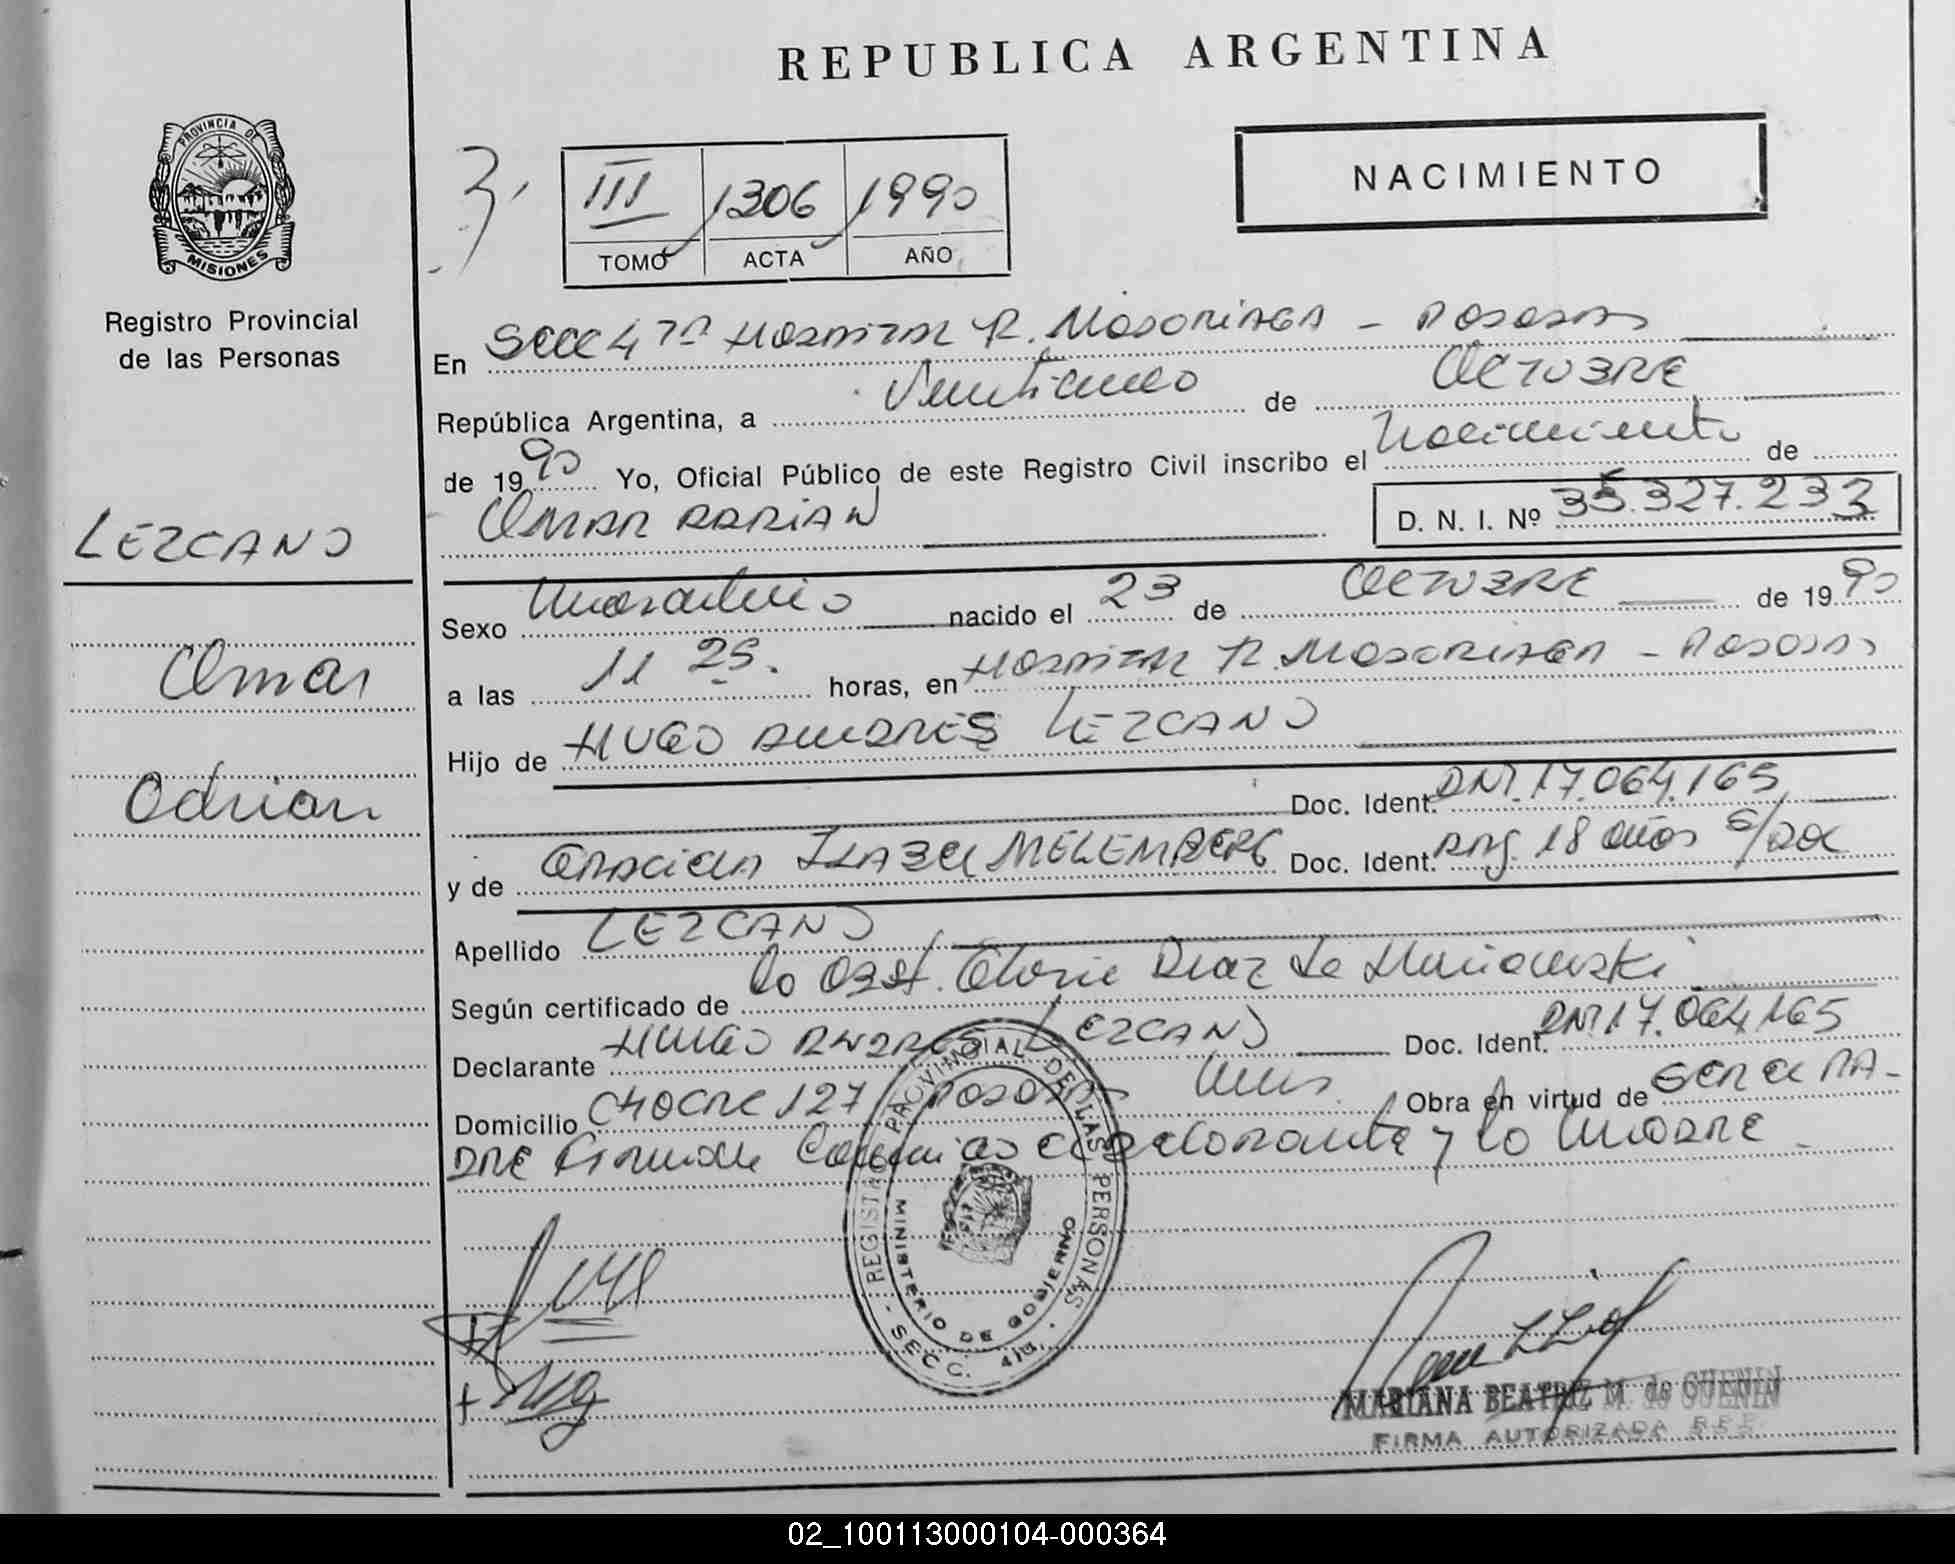 REPUBLICA ARGENTINA
PROVINCIA DE
MISIONES
Registro Provincial
de las Personas
III 1306 1990
TOMO ACTA AÑO
NACIMIENTO
En Secc 4ta Hospital R. Madariaga - Posadas
República Argentina, a Veinticinco de Octubre
de 1990 Yo, Oficial Público de este Registro Civil inscribo el Nacimiento de
Omar Adrian
D. N. I. Nº 35.327.233
LEZCANO
Omar
Adrian
Sexo Masculino nacido el 23 de Octubre de 1990
a las 11 25. horas, en Hospital R. Madariaga - Posadas
Hijo de Hugo Andres Lezcano
Doc. Ident. DNI.17.064.165
y de Graciela Isabel MELEMBERG Doc. Ident. Arg. 18 años s/doc
Apellido LEZCANO
Según certificado de la Obst. Gloria Diaz de
Declarante Hugo Andres Lezcano Doc. Ident. DNI 17.064.165
Domicilio 127 Posadas Mnes. Obra en virtud de ser el PA-
DRE Firman el declarante y la Madre -
REGISTRO PROVINCIAL DE LAS PERSONAS
MINISTERIO DE GOBIERNO
SECC. 4ta.
MARIANA BEATRIZ M. de GUENIN
FIRMA AUTORIZADA R.P.P.
02_100113000104-000364